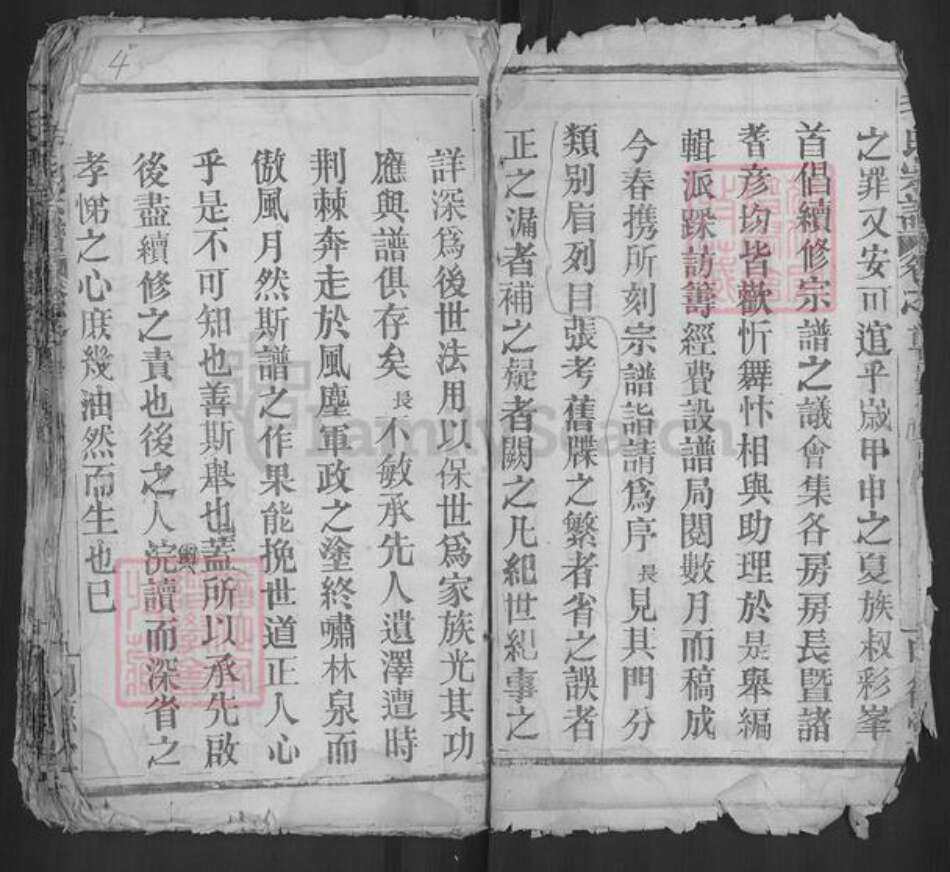 之罪又安可逭乎嵗甲申之夏族叔彩峯
首倡續修宗譜之議會集各房房長暨諸
耆彦均皆歡忻舞忭相與助理於是舉編
輯派踩訪籌經費設譜局閱數月而稿成
今春携所刻宗譜詣請爲序長見其門分
類别眉列目張考舊牒之繁者省之誤者
正之漏者補之疑者闕之凡紀世紀事之
詳深爲後世法用以保世爲家族光其功
應與譜俱存矣長不敏承先人遺澤遭時
荆棘奔走於風塵軍政之塗終嘯林泉而
傲風月然斯譜之作果能挽世道正人心
乎是不可知也善斯舉也蓋所以承先啟
後盡續修之責也後之人浣讀而深省之
孝悌之心庶幾油然而生也已
4
FamilySearch